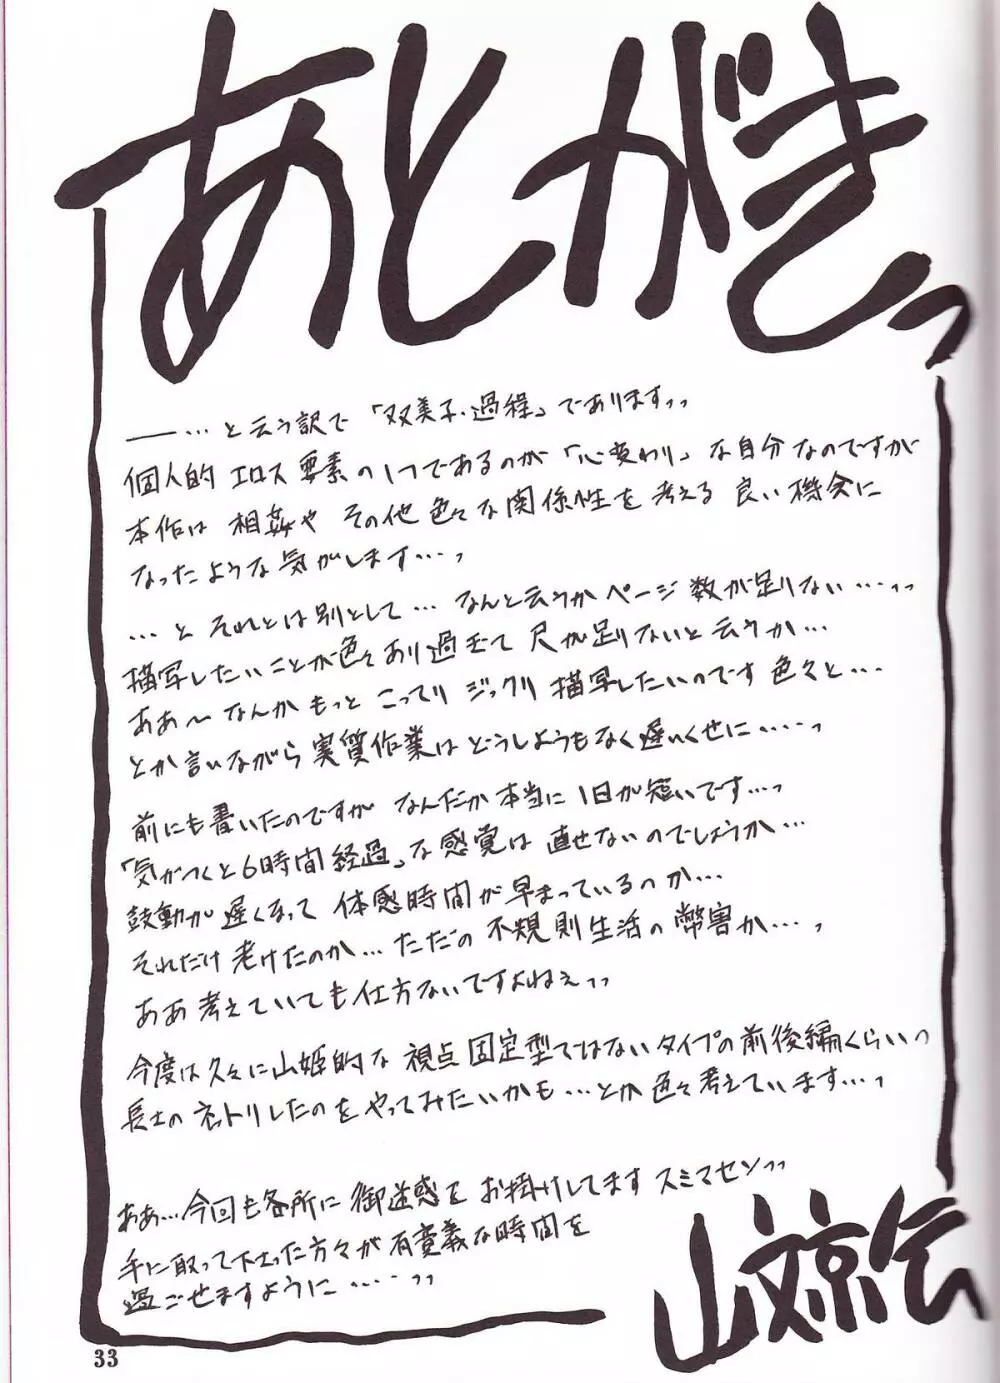 あとがきっ
――…と云う訳で「双美子・過程」でありますッ
個人的エロス要素の1つであるのが「心変わり」な自分なのですが
本作は相姦やその他色々な関係性を考える良い機会に
なったような気がします…っ
…と それとは別として…なんと云うかページ数が足りない…ッ
描写したいことが色々あり過ぎて尺が足りないと云うか…
ああ〜なんかもっとこってりジックリ描写したいのです色々と…
とか言いながら実質作業はどうしようもなく遅いくせに……っ
前にも書いたのですがなんだか本当に1日が短いです…っ
「気がつくと6時間経過」な感覚は直せないのでしょうか…
鼓動が遅くなって体感時間が早まっているのか…
それだけ老けたのか…ただの不規則生活の弊害か…っ
ああ考えていても仕方ないですよねぇッ
今度は久々に山姫的な視点固定型ではないタイプの前後編くらいっ
長士のネットリしたのをやってみたいかも…とか色々考えています…っ
ああ…今回も各所に御迷惑をお掛けしてますスミマセンッ
手に取って下さった方々が有意義な時間を
過ごせますように……ッ
山文京伝
33